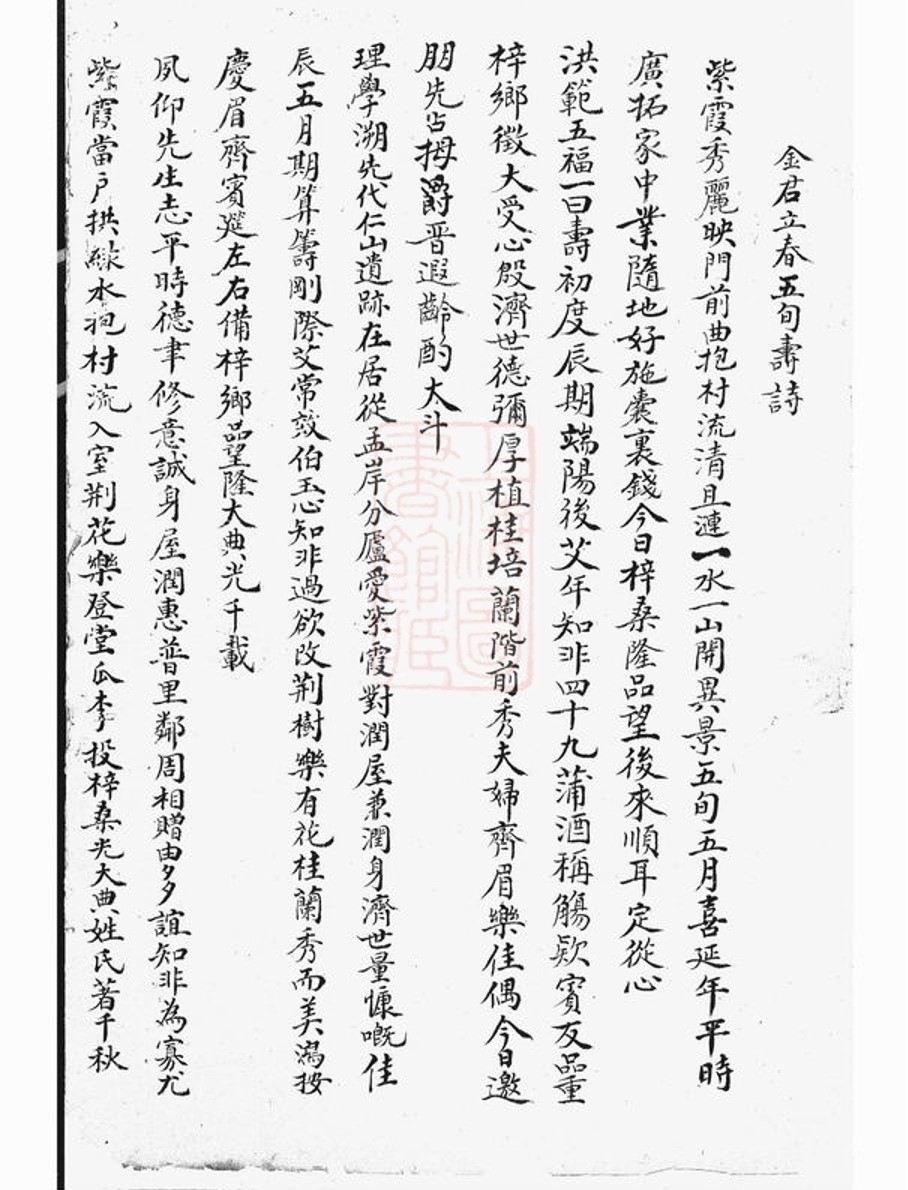 金君立春五旬壽詩
紫霞秀麗映門前曲抱村流清且漣一水一山開異景五旬五月喜延年平時
廣拓家中業隨地好施囊裏錢今日梓桑隆品望後來順耳定從心
洪範五福一曰壽初度辰期端陽後艾年知非四十九蒲酒稱觴欵賓友品重
梓鄉徵大受心殷濟世德彌厚植桂培蘭階前秀夫婦齊眉樂佳偶今日邀
朋先占拇爵晋遐齡酌大斗
理學溯先代仁山遺跡在居從孟岸分廬愛紫霞對潤屋兼潤身濟世量慷嘅佳
辰五月期算籌剛際艾常效伯玉心知非過欲改荆樹樂有花桂蘭秀而美潙按
慶眉齊賓筵左右備梓鄉品望隆大典光千載
夙仰先生志平時德聿修意誠身屋潤惠普里鄰周相贈由多誼知非為寡尤
紫霞當戶拱綠水抱村流入室荆花樂登堂瓜李投梓桑光大典姓氏著千秋